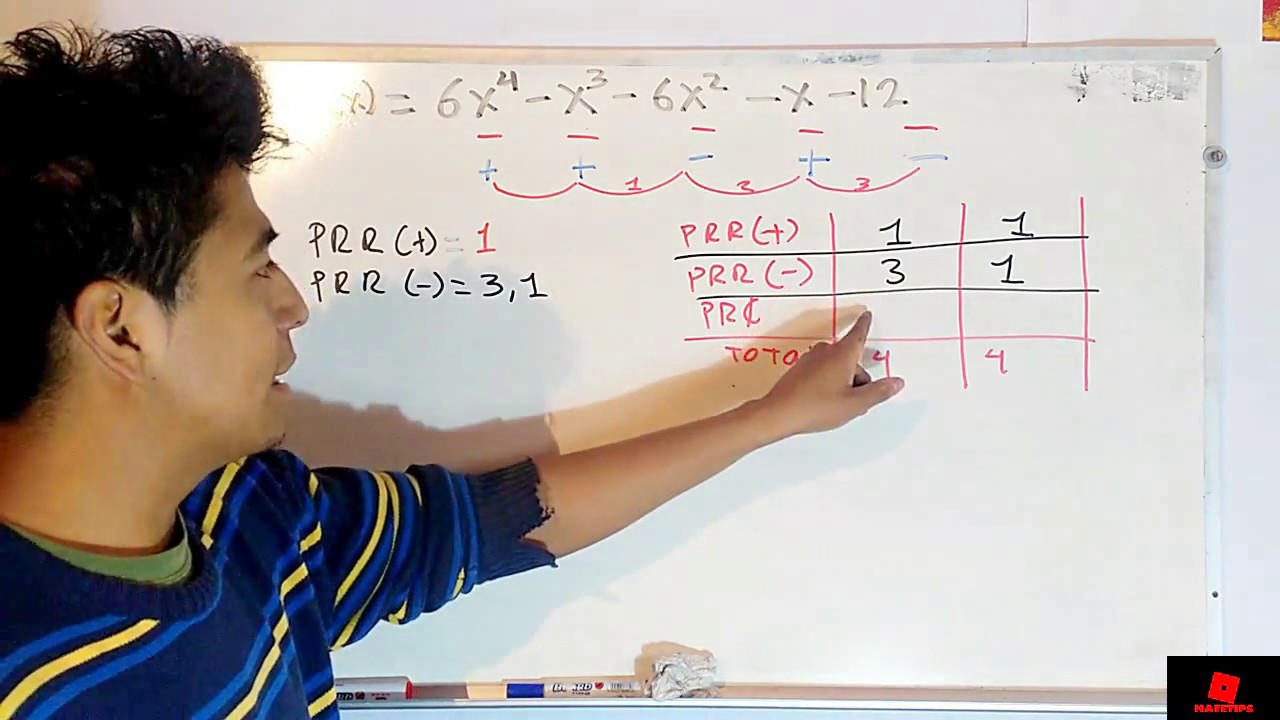 x) = 6x⁴ - x³ - 6x² - x - 12
- - - - -
+ + - + -
1 2 3
PRR(+) = 1
PRR(-) = 3,1
PRR(+) 1 1
PRR(-) 3 1
PR₵
4 4
MATETIPS